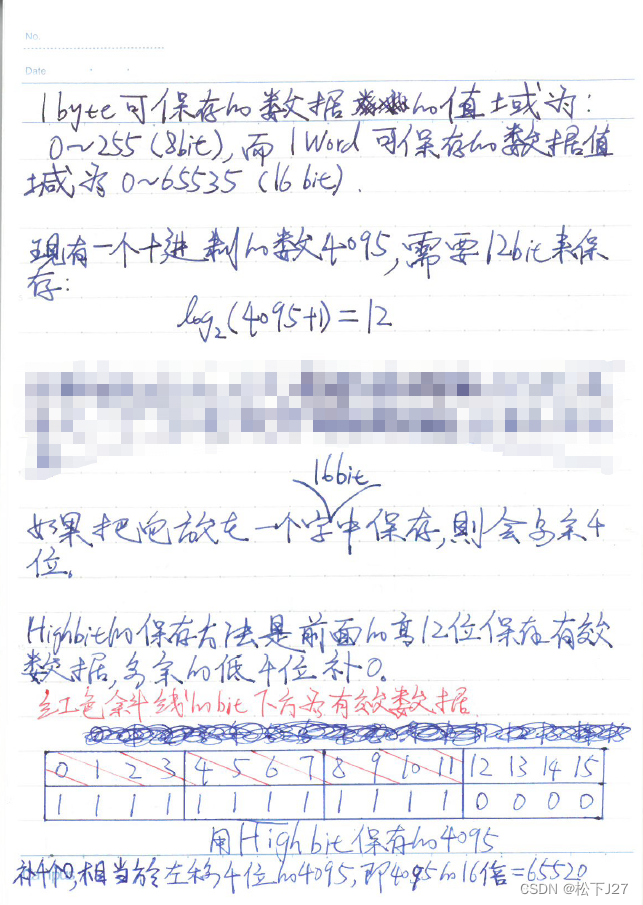 No.
Date
1byte可保存的数据的值域为:
0~255(8bit),而1Word可保存的数据值
域为0~65535(16bit).
现有一个十进制的数4095,需要12bit来保
存:
log₂(4095+1)=12
16bit
如果把它放在一个字中保存,则会多余4
位。
Highbit的保存方法是前面的高12位保存有效
数据,多余的低4位补0。
红色斜线的bit下方为有效数据
0 1 2 3 4 5 6 7 8 9 10 11 12 13 14 15
1 1 1 1 1 1 1 1 1 1 1 1 0 0 0 0
用Highbit保存的4095
补4个0,相当于左移4位的4095,即4095的16倍=65520
CSDN @松下J27